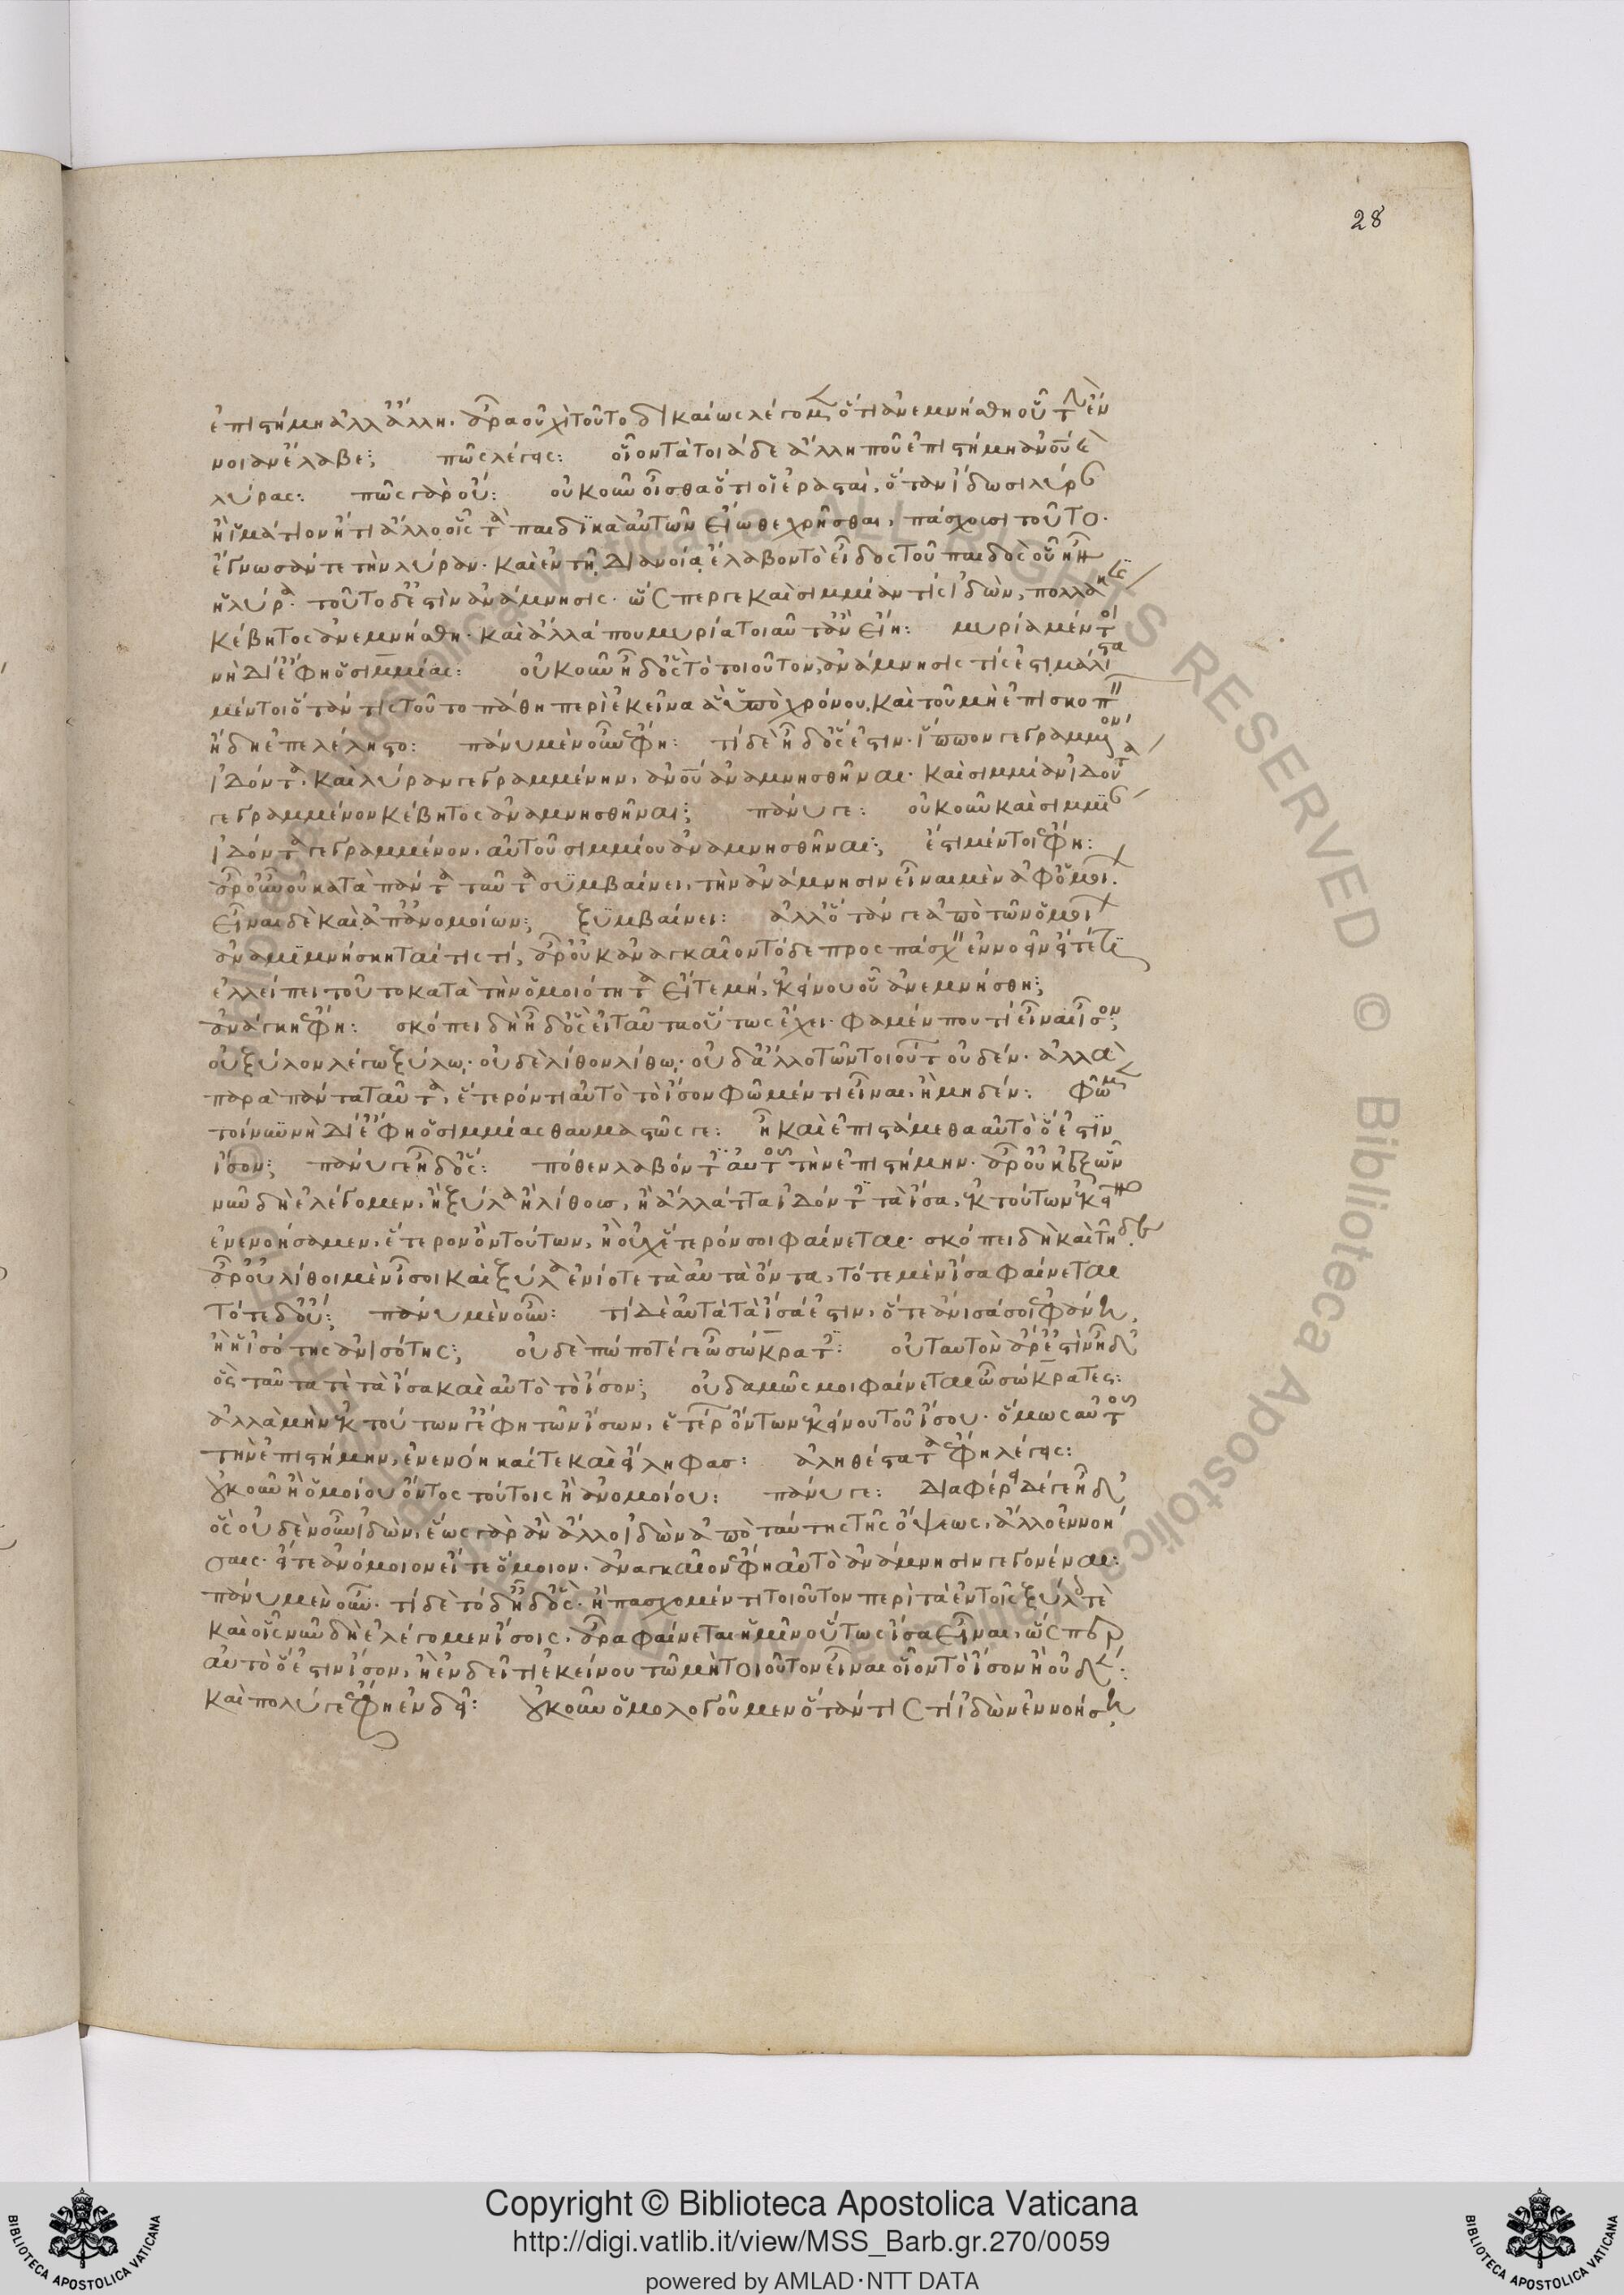 28
ἐπιστήμη ἀλλ' ἄλλη. ἆρα οὐχὶ τοῦτο δικαίως λέγομεν ὅτι ἀνεμνήσθη οὗ τὴν ἔν
νοιαν ἔλαβε; πῶς λέγεις: οἷον τὰ τοιάδε ἄλλη που ἐπιστήμη ἀνθρώπου καὶ
λύρας: πῶς γὰρ οὔ: οὐκοῦν οἶσθα ὅτι οἱ ἐρασταὶ, ὅταν ἴδωσι λύραν
ἢ ἱμάτιον ἤ τι ἄλλο οἷς τὰ παιδικὰ αὐτῶν εἴωθε χρῆσθαι, πάσχουσι τοῦτο.
ἔγνωσάν τε τὴν λύραν. καὶ ἐν τῇ διανοίᾳ ἔλαβον τὸ εἶδος τοῦ παιδὸς οὗ ἦν
ἡ λύρα. τοῦτο δ' ἐστὶν ἀνάμνησις. ὥσπερ γε καὶ σιμμίαν τίς ἰδὼν, πολλάκις
κέβητος ἀνεμνήσθη. καὶ ἄλλά που μυρία τοιαῦτ' ἂν εἴη: μυρία μέντοι
νὴ Δί' ἔφη ὁ σιμμίας: οὐκοῦν ἦ δ' ὃς τὸ τοιοῦτον, ἀνάμνησις τίς ἐστι μάλιστα
μέντοι ὅταν τις τοῦτο πάθη περὶ ἐκεῖνα ἃ ὑπὸ χρόνου, καὶ τοῦ μὴ ἐπισκοπεῖν
ἤδη ἐπελέληστο: πάνυ μὲν οὖν ἔφη: τί δὲ ἦ δ' ὃς ἔστιν. ἵππον γεγραμμένον
ἰδόντα. καὶ λύραν γεγραμμένην, ἀνθρώπου ἀναμνησθῆναι. καὶ σιμμίαν ἰδόντα
γεγραμμένον κέβητος ἀναμνησθῆναι; πάνυ γε: οὐκοῦν καὶ σιμμίαν
ἰδόντα γεγραμμένον, αὐτοῦ σιμμίου ἀναμνησθῆναι; ἔστι μέντοι ἔφη:
ἆρ' οὖν οὐ κατὰ πάντα ταῦτα συμβαίνει, τὴν ἀνάμνησιν εἶναι μὲν ἀφ' ὁμοίων.
εἶναι δὲ καὶ ἀπ' ἀνομοίων; ξυμβαίνει: ἀλλ' ὅταν γε ἀπὸ τῶν ὁμοίων
ἀναμιμνήσκηταί τις τί, ἆρ' οὐκ ἀναγκαῖον τόδε προσπάσχειν ἐννοεῖν εἴτέ τι
ἐλλείπει τοῦτο κατὰ τὴν ὁμοιότητα εἴτε μή, ἐκείνου οὗ ἀνεμνήσθη;
ἀνάγκη ἔφη: σκόπει δὴ ἦ δ' ὃς εἰ ταῦτα οὕτως ἔχει. φαμέν που τὶ εἶναι ἴσον;
οὐ ξύλον λέγω ξύλω, οὐδὲ λίθον λίθω, οὐδ' ἄλλο τῶν τοιούτων οὐδέν. ἀλλὰ
παρὰ πάντα ταῦτα, ἕτερόν τι αὐτὸ τὸ ἴσον φῶμέν τι εἶναι, ἢ μηδέν: φῶμεν
τοίνυν νὴ Δί' ἔφη ὁ σιμμίας θαυμαστῶς γε: ἦ καὶ ἐπιστάμεθα αὐτὸ ὃ ἔστιν
ἴσον; πάνυ γε ἦ δ' ὅς: πόθεν λαβόντες αὐτοῦ τὴν ἐπιστήμην. ἆρ' οὐκ ἐξ ὧν
νῦν δὴ ἐλέγομεν, ἢ ξύλα ἢ λίθους, ἢ ἄλλ' ἄττα ἰδόντες τὰ ἴσα, ἐκ τούτων ἐκεῖνο
ἐνενοήσαμεν, ἕτερον ὂν τούτων, ἢ οὐχ ἕτερόν σοι φαίνεται. σκόπει δὴ καὶ τῇδε.
ἆρ' οὐ λίθοι μὲν ἴσοι καὶ ξύλα ἐνίοτε τὰ αὐτὰ ὄντα, τότε μὲν ἴσα φαίνεται
τότε δ' οὔ; πάνυ μὲν οὖν: τί δὲ αὐτὰ τὰ ἴσα ἔστιν, ὅτε ἄνισά σοι ἐφάνη,
ἢ ἡ ἰσότης ἀνισότης; οὐδὲ πώποτέ γε ὦ σώκρατες: οὐ ταυτὸν ἄρ' ἐστὶν ἦ δ'
ὃς ταῦτα τὲ τὰ ἴσα καὶ αὐτὸ τὸ ἴσον; οὐδαμῶς μοι φαίνεται ὦ σώκρατες:
ἀλλὰ μὴν ἐκ τούτων γ' ἔφη τῶν ἴσων, ἑτέρων ὄντων ἐκείνου τοῦ ἴσου. ὅμως αὐτοῦ
τὴν ἐπιστήμην, ἐνενόηκάς τε καὶ εἴληφας: ἀληθέστατα ἔφη λέγεις:
οὐκοῦν ἢ ὁμοίου ὄντος τούτοις ἢ ἀνομοίου: πάνυ γε: διαφέρει δέ γε ἦ δ'
ὃς οὐδὲν οὖν ἰδὼν, ἕως γὰρ ἂν ἄλλο ἰδὼν ἀπὸ ταύτης τῆς ὄψεως, ἄλλο ἐννοή
σαις. εἴτε ἀνόμοιον εἴτε ὅμοιον. ἀναγκαῖον ἔφη αὐτὸ ἀνάμνησιν γεγονέναι:
πάνυ μὲν οὖν. τί δὲ τόδ' ἦ δ' ὃς. ἢ πάσχομέν τι τοιοῦτον περὶ τὰ ἐν τοῖς ξύλοις τὲ
καὶ οἷς νῦν δὴ ἐλέγομεν ἴσοις. ἆρα φαίνεται ἡμῖν οὕτως ἴσα εἶναι, ὥσπερ
αὐτὸ ὃ ἔστιν ἴσον, ἢ ἐνδεῖ τι ἐκείνου τῶ μὴ τοιοῦτον εἶναι οἷον τὸ ἴσον ἢ οὐδέν:
καὶ πολύ γε ἔφη ἐνδεῖ: οὐκοῦν ὁμολογοῦμεν ὅταν τίς τι ἰδὼν ἐννοήσῃ
Copyright © Biblioteca Apostolica Vaticana
http://digi.vatlib.it/view/MSS_Barb.gr.270/0059
powered by AMLAD·NTT DATA
BIBLIOTECA APOSTOLICA VATICANA
BIBLIOTECA APOSTOLICA VATICANA